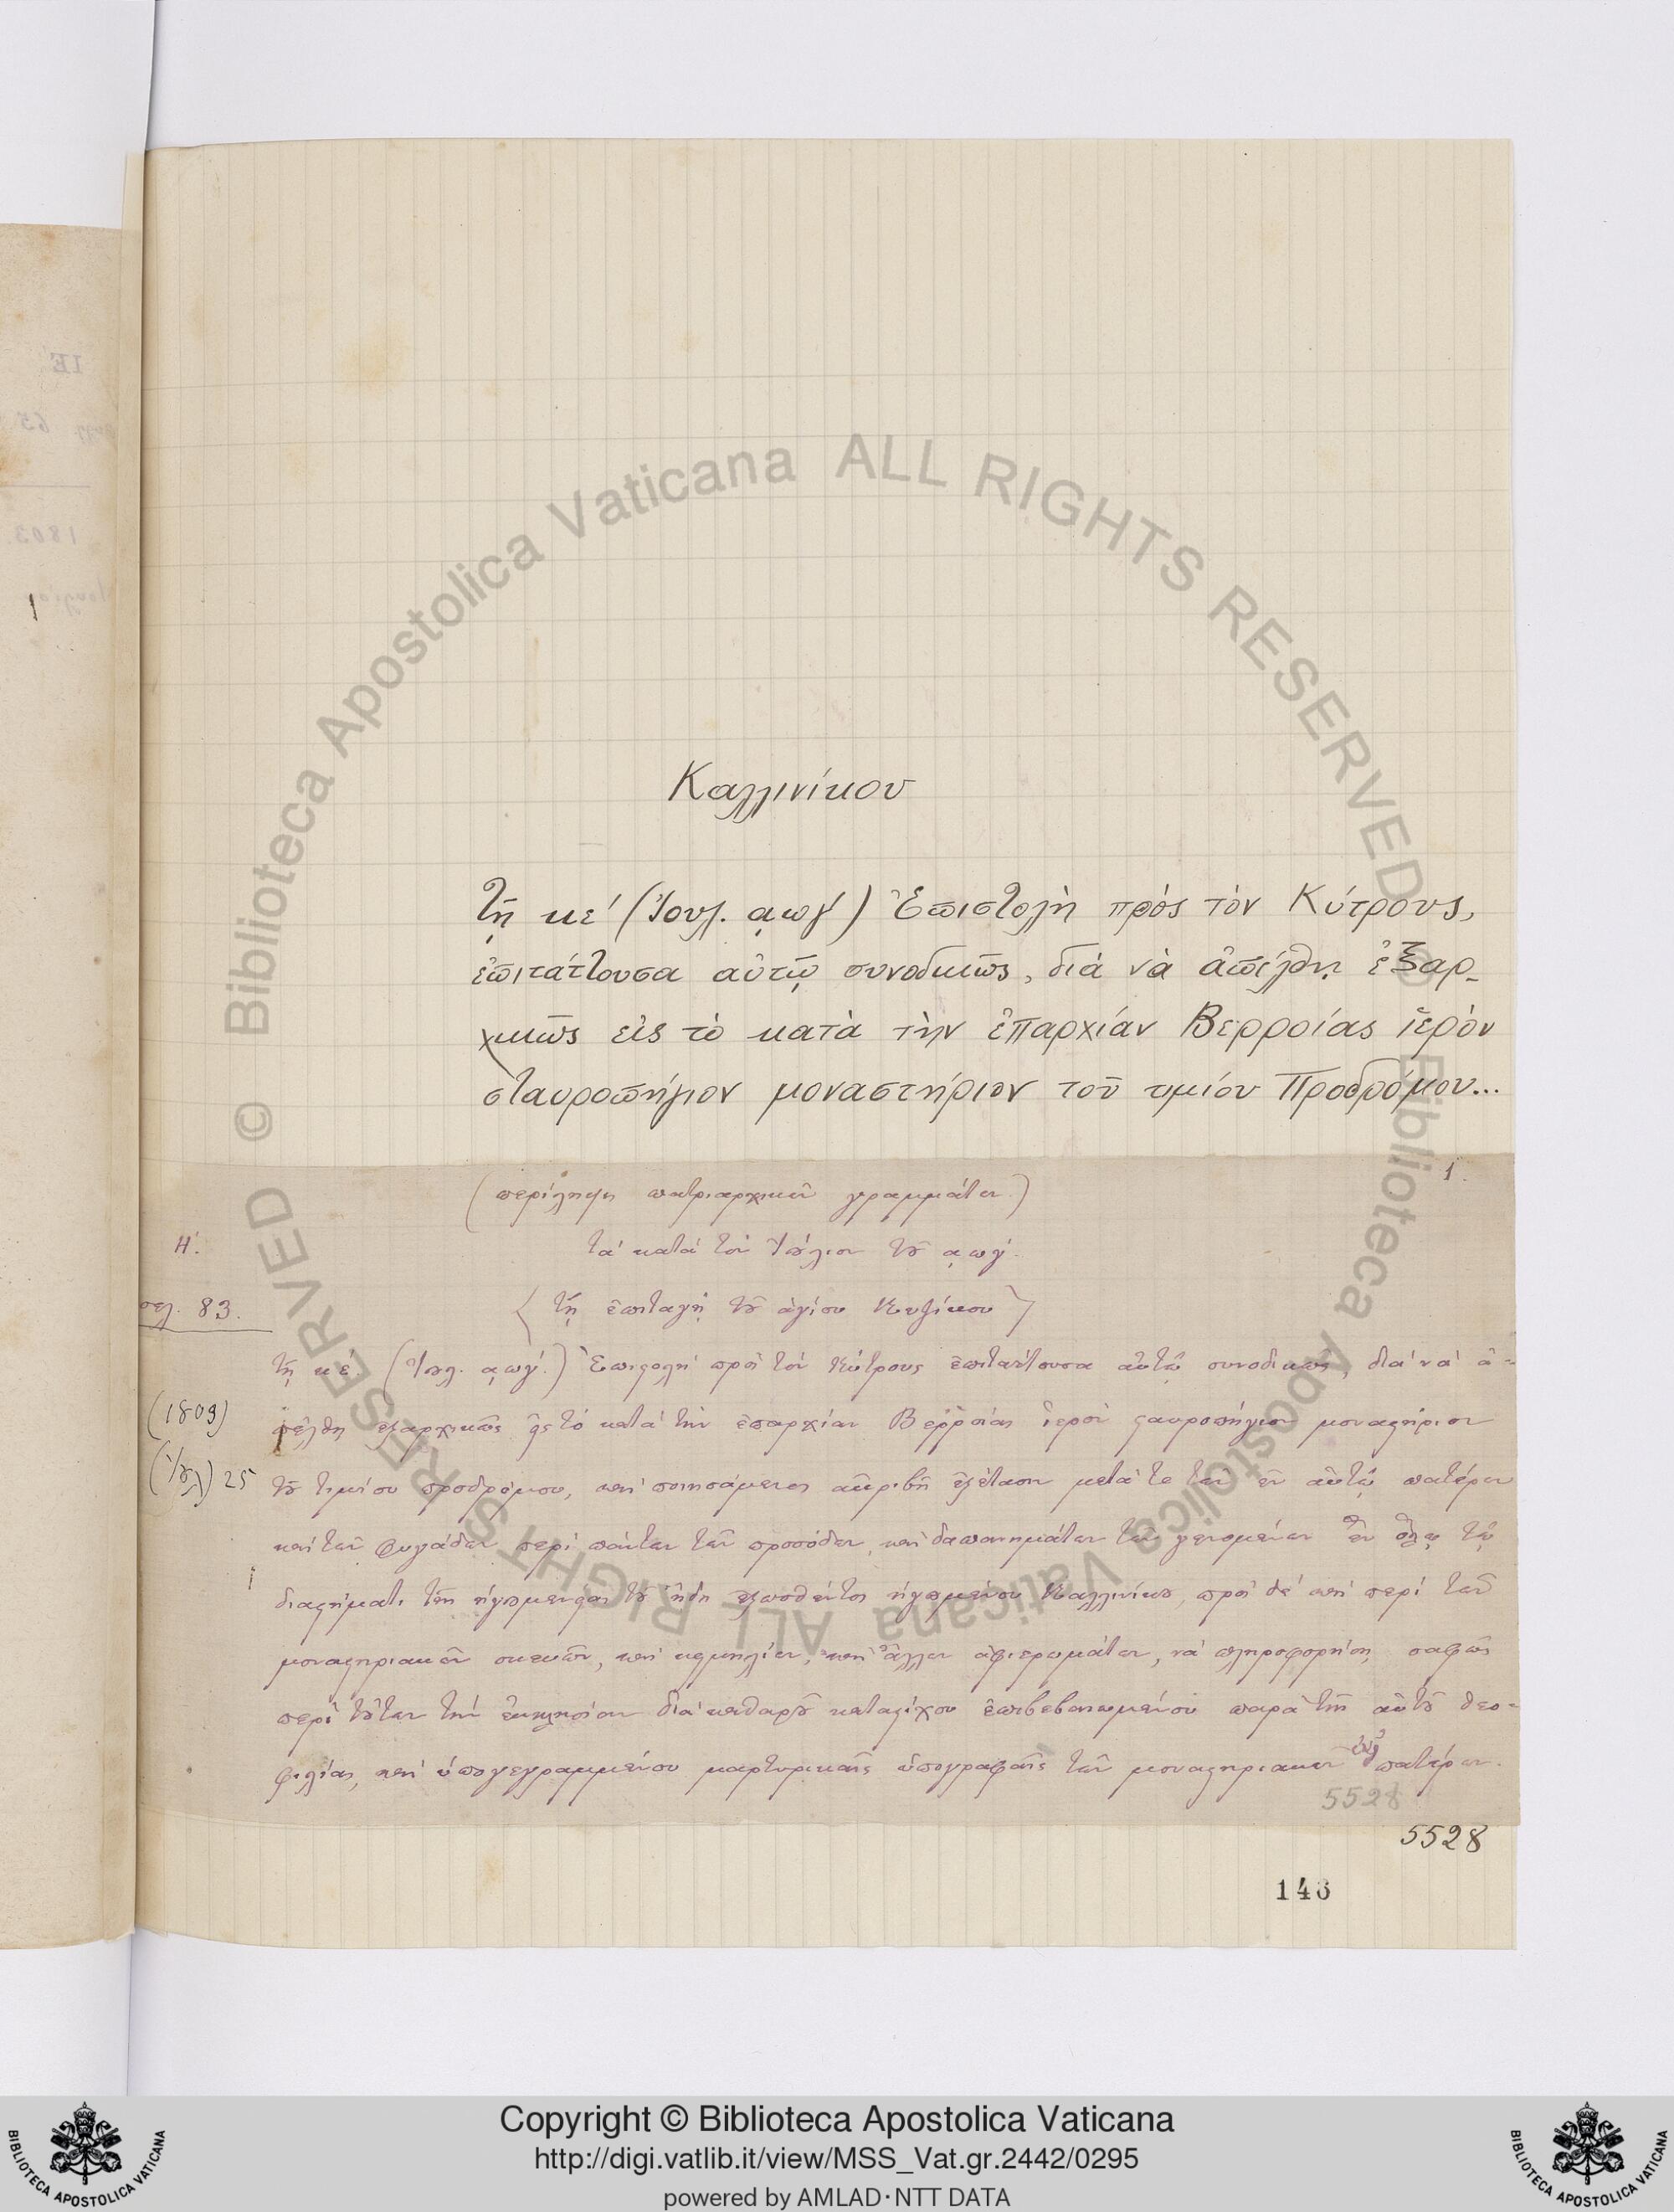 Καλλινίκου
τῇ κε´ (Ἰουλ. ͵αωγ´) Ἐπιστολὴ πρὸς τὸν Κύτρους,
ἐπιτάττουσα αὐτῷ συνοδικῶς, διὰ νὰ ἀπέλθῃ ἐξαρ-
χικῶς εἰς τὸ κατὰ τὴν ἐπαρχίαν Βερροίας ἱερὸν
σταυροπήγιον μοναστήριον τοῦ τιμίου Προδρόμου...
1.
(περίληψη πατριαρχικῶν γραμμάτων)
Η´.
τὰ κατὰ τὸν Ἰούλιον τοῦ ͵αωγ´.
σελ. 83.
〈τῇ ἐπιταγῇ τοῦ ἁγίου Κυζίκου〉
τῇ κέ. (Ἰουλ. ͵αωγ´.) Ἐπιστολὴ πρὸς τὸν Κύτρους ἐπιτάττουσα αὐτῷ συνοδικῶς, διὰ νὰ ἀ-
(1803) πέλθῃ ἐξαρχικῶς εἰς τὸ κατὰ τὴν ἐπαρχίαν Βερροίας ἱερὸν σταυροπήγιον μοναστήριον
(Ἰουλ) 25 τοῦ τιμίου προδρόμου, καὶ ποιησάμενος ἀκριβῆ ἐξέτασιν μετά τε τῶν ἐν αὐτῷ πατέρων
καὶ τῶν φυγάδων περὶ πάντων τῶν προσόδων, καὶ δαπανημάτων τῶν γενομένων ἐν ὅλῳ τῷ
διαστήματι τῆς ἡγουμενείας τοῦ ἤδη ἐξωσθέντος ἡγουμένου Καλλινίκου, πρὸς δὲ καὶ περὶ τῶν
μοναστηριακῶν σκευῶν, καὶ κειμηλίων, καὶ ἄλλων ἀφιερωμάτων, νὰ πληροφορήσῃ σαφῶς
περὶ τούτων τὴν ἐκκλησίαν διὰ καθαροῦ καταστίχου ἐπιβεβαιωμένου παρὰ τῆς αὐτοῦ θεο-
φιλίας, καὶ ὑπογεγραμμένου μαρτυρικαῖς ὑπογραφαῖς τῶν μοναστηριακῶν πατέρων.
5528
5528
143
Biblioteca Apostolica Vaticana ALL RIGHTS RESERVED ©
Biblioteca Apostolica Vaticana ALL RIGHTS RESERVED ©
Copyright © Biblioteca Apostolica Vaticana
http://digi.vatlib.it/view/MSS_Vat.gr.2442/0295
powered by AMLAD·NTT DATA
BIBLIOTECA APOSTOLICA VATICANA
BIBLIOTECA APOSTOLICA VATICANA